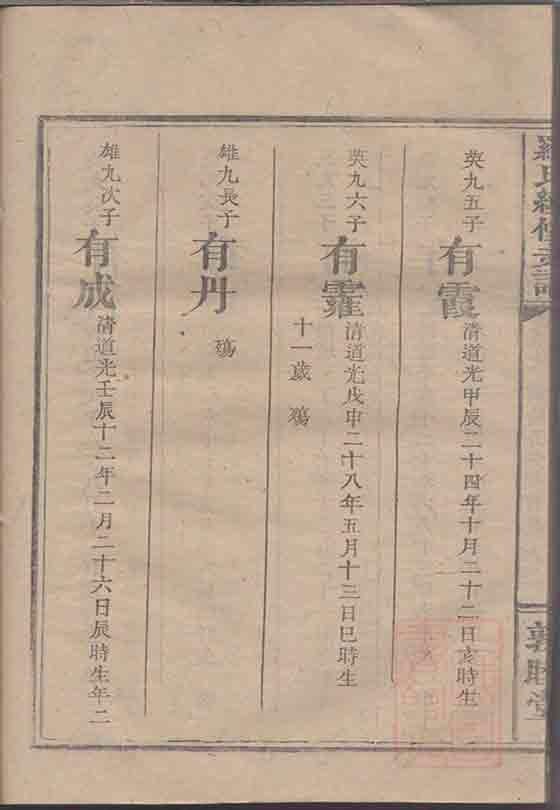 羅氏續修支譜
敦睦堂
英九五子有霞清道光甲辰二十四年十月二十二日亥時生
英九六子有靃清道光戊申二十八年五月十三日巳時生
十一歲殤
雄九長子有丹殤
雄九次子有成清道光壬辰十二年二月二十六日辰時生年二